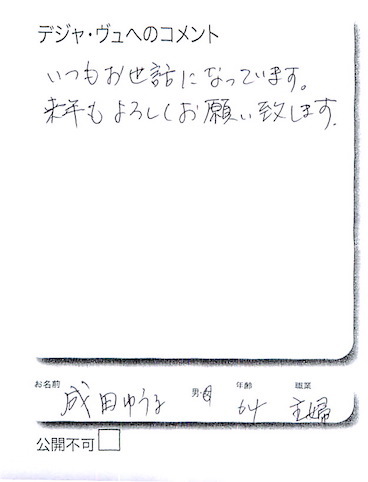 デジャ・ヴュへのコメント
いつもお世話になっています。
来年もよろしくお願い致します.
お名前 成田ゆう子 男・女 年齢 64 職業 主婦
公開不可